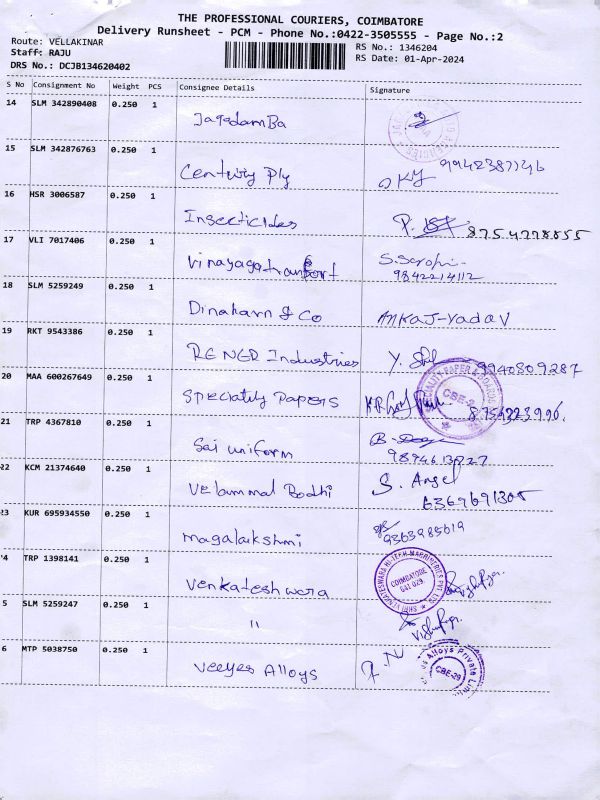 THE PROFESSIONAL COURIERS, COIMBATORE
Delivery Runsheet - PCM - Phone No.:0422-3505555 - Page No.:2
Route: VELLAKINAR
RS No.: 1346204
Staff: RAJU
RS Date: 01-Apr-2024
DRS No.: DCJB134620402
S No Consignment No Weight PCS Consignee Details Signature
14 SLM 342890408 0.250 1 JagadamBa
15 SLM 342876763 0.250 1 Century Ply
16 HSR 3006587 0.250 1 Insecticides
17 VLI 7017406 0.250 1 Vinayagatransport
9842214112
18 SLM 5259249 0.250 1 Dinaharn & Co ANKAJ-YADAV
19 RKT 9543386 0.250 1 RENER Industries 9940809287
20 MAA 600267649 0.250 1 Speciality Papers
21 TRP 4367810 0.250 1 Sai uniform
22 KCM 21374640 0.250 1 Velammal Bodhi S. Angel
6369691305
23 KUR 695934550 0.250 1 magalakshmi
9363985619
4 TRP 1398141 0.250 1 Venkateshwara
SHRI VENKATESWARA HI-TECH MACHINERIES PVT LTD
COIMBATORE
641 029
5 SLM 5259247 0.250 1 "
6 MTP 5038750 0.250 1 Veeyes Alloys
Alloys Private Limi
CBE-29